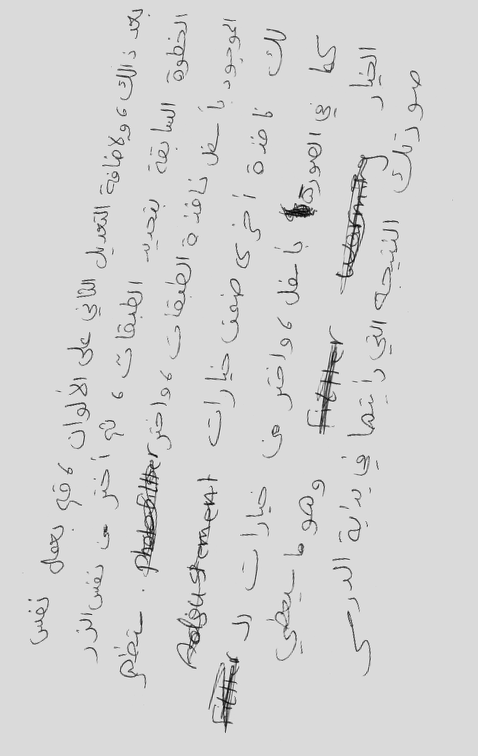 بعد ذالك، ولاضافة التعديل الثاني على الألوان، قم بعمل نفس
الخطوة السابقة بتحديد الطبقات، ثم أختر من نفس الزر
الموجود بأسفل نافذة الطبقات، واختر Photofilter. ستظهر
لك نافذة أخرى ضمن خيارات Adjustement
كما في الصورة بأسفل، واختر من خيارات الـ Filter
الخيار Warming Filter وهو ما سيعطي
صورتك النتيجة التي رأيتها في بداية الدرس